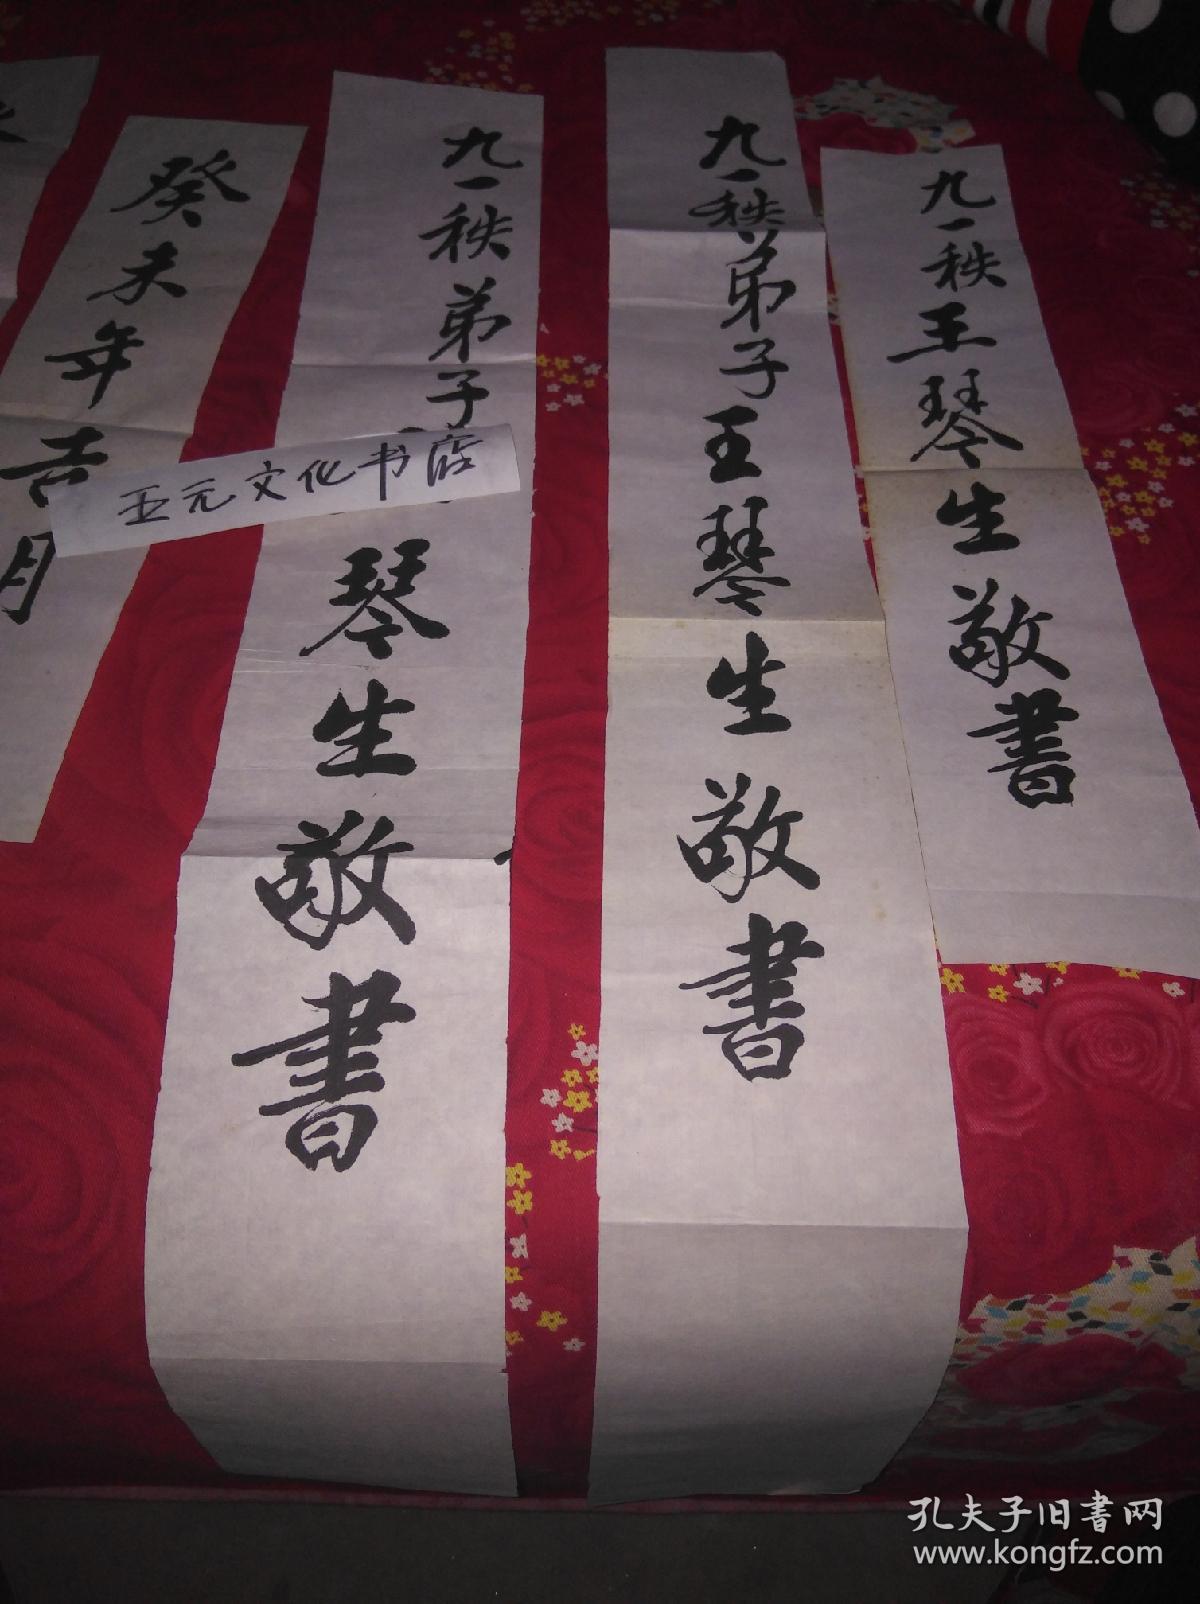 九一秩王琴生敬書
九一秩弟子王琴生敬書
九一秩弟子琴生敬書
癸未年吉月
玉元文化书店
孔夫子旧書网
www.kongfz.com